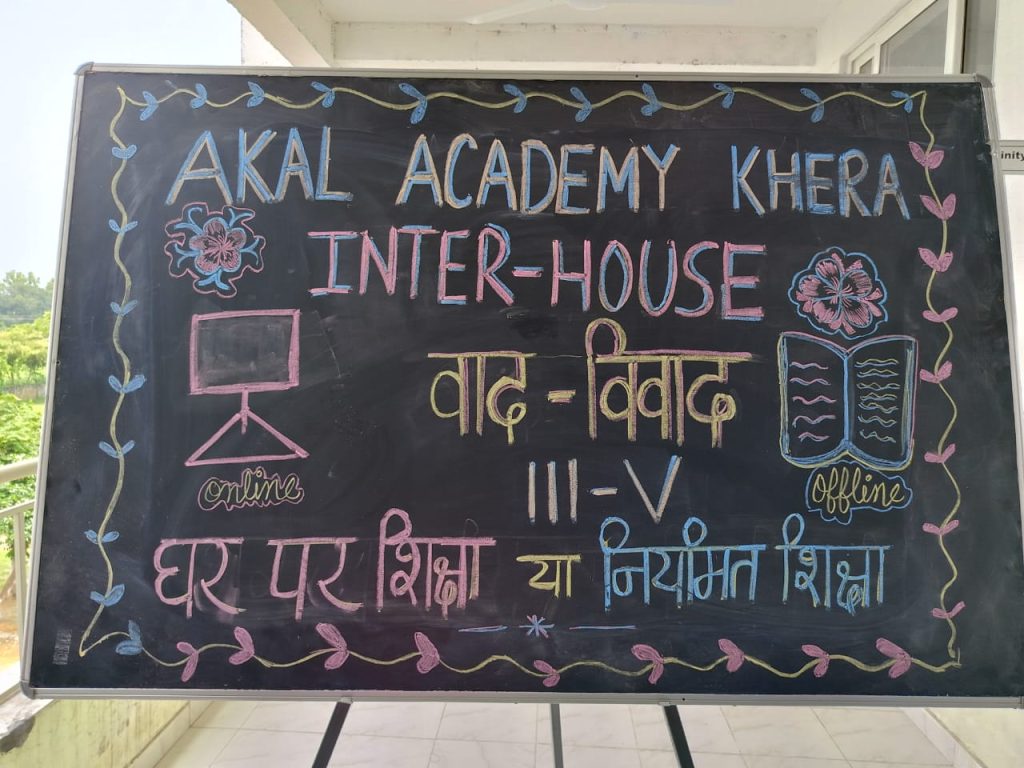 AKAL ACADEMY KHERA
INTER-HOUSE
वाद - विवाद
III - V
online
offline
घर पर शिक्षा या नियमित शिक्षा